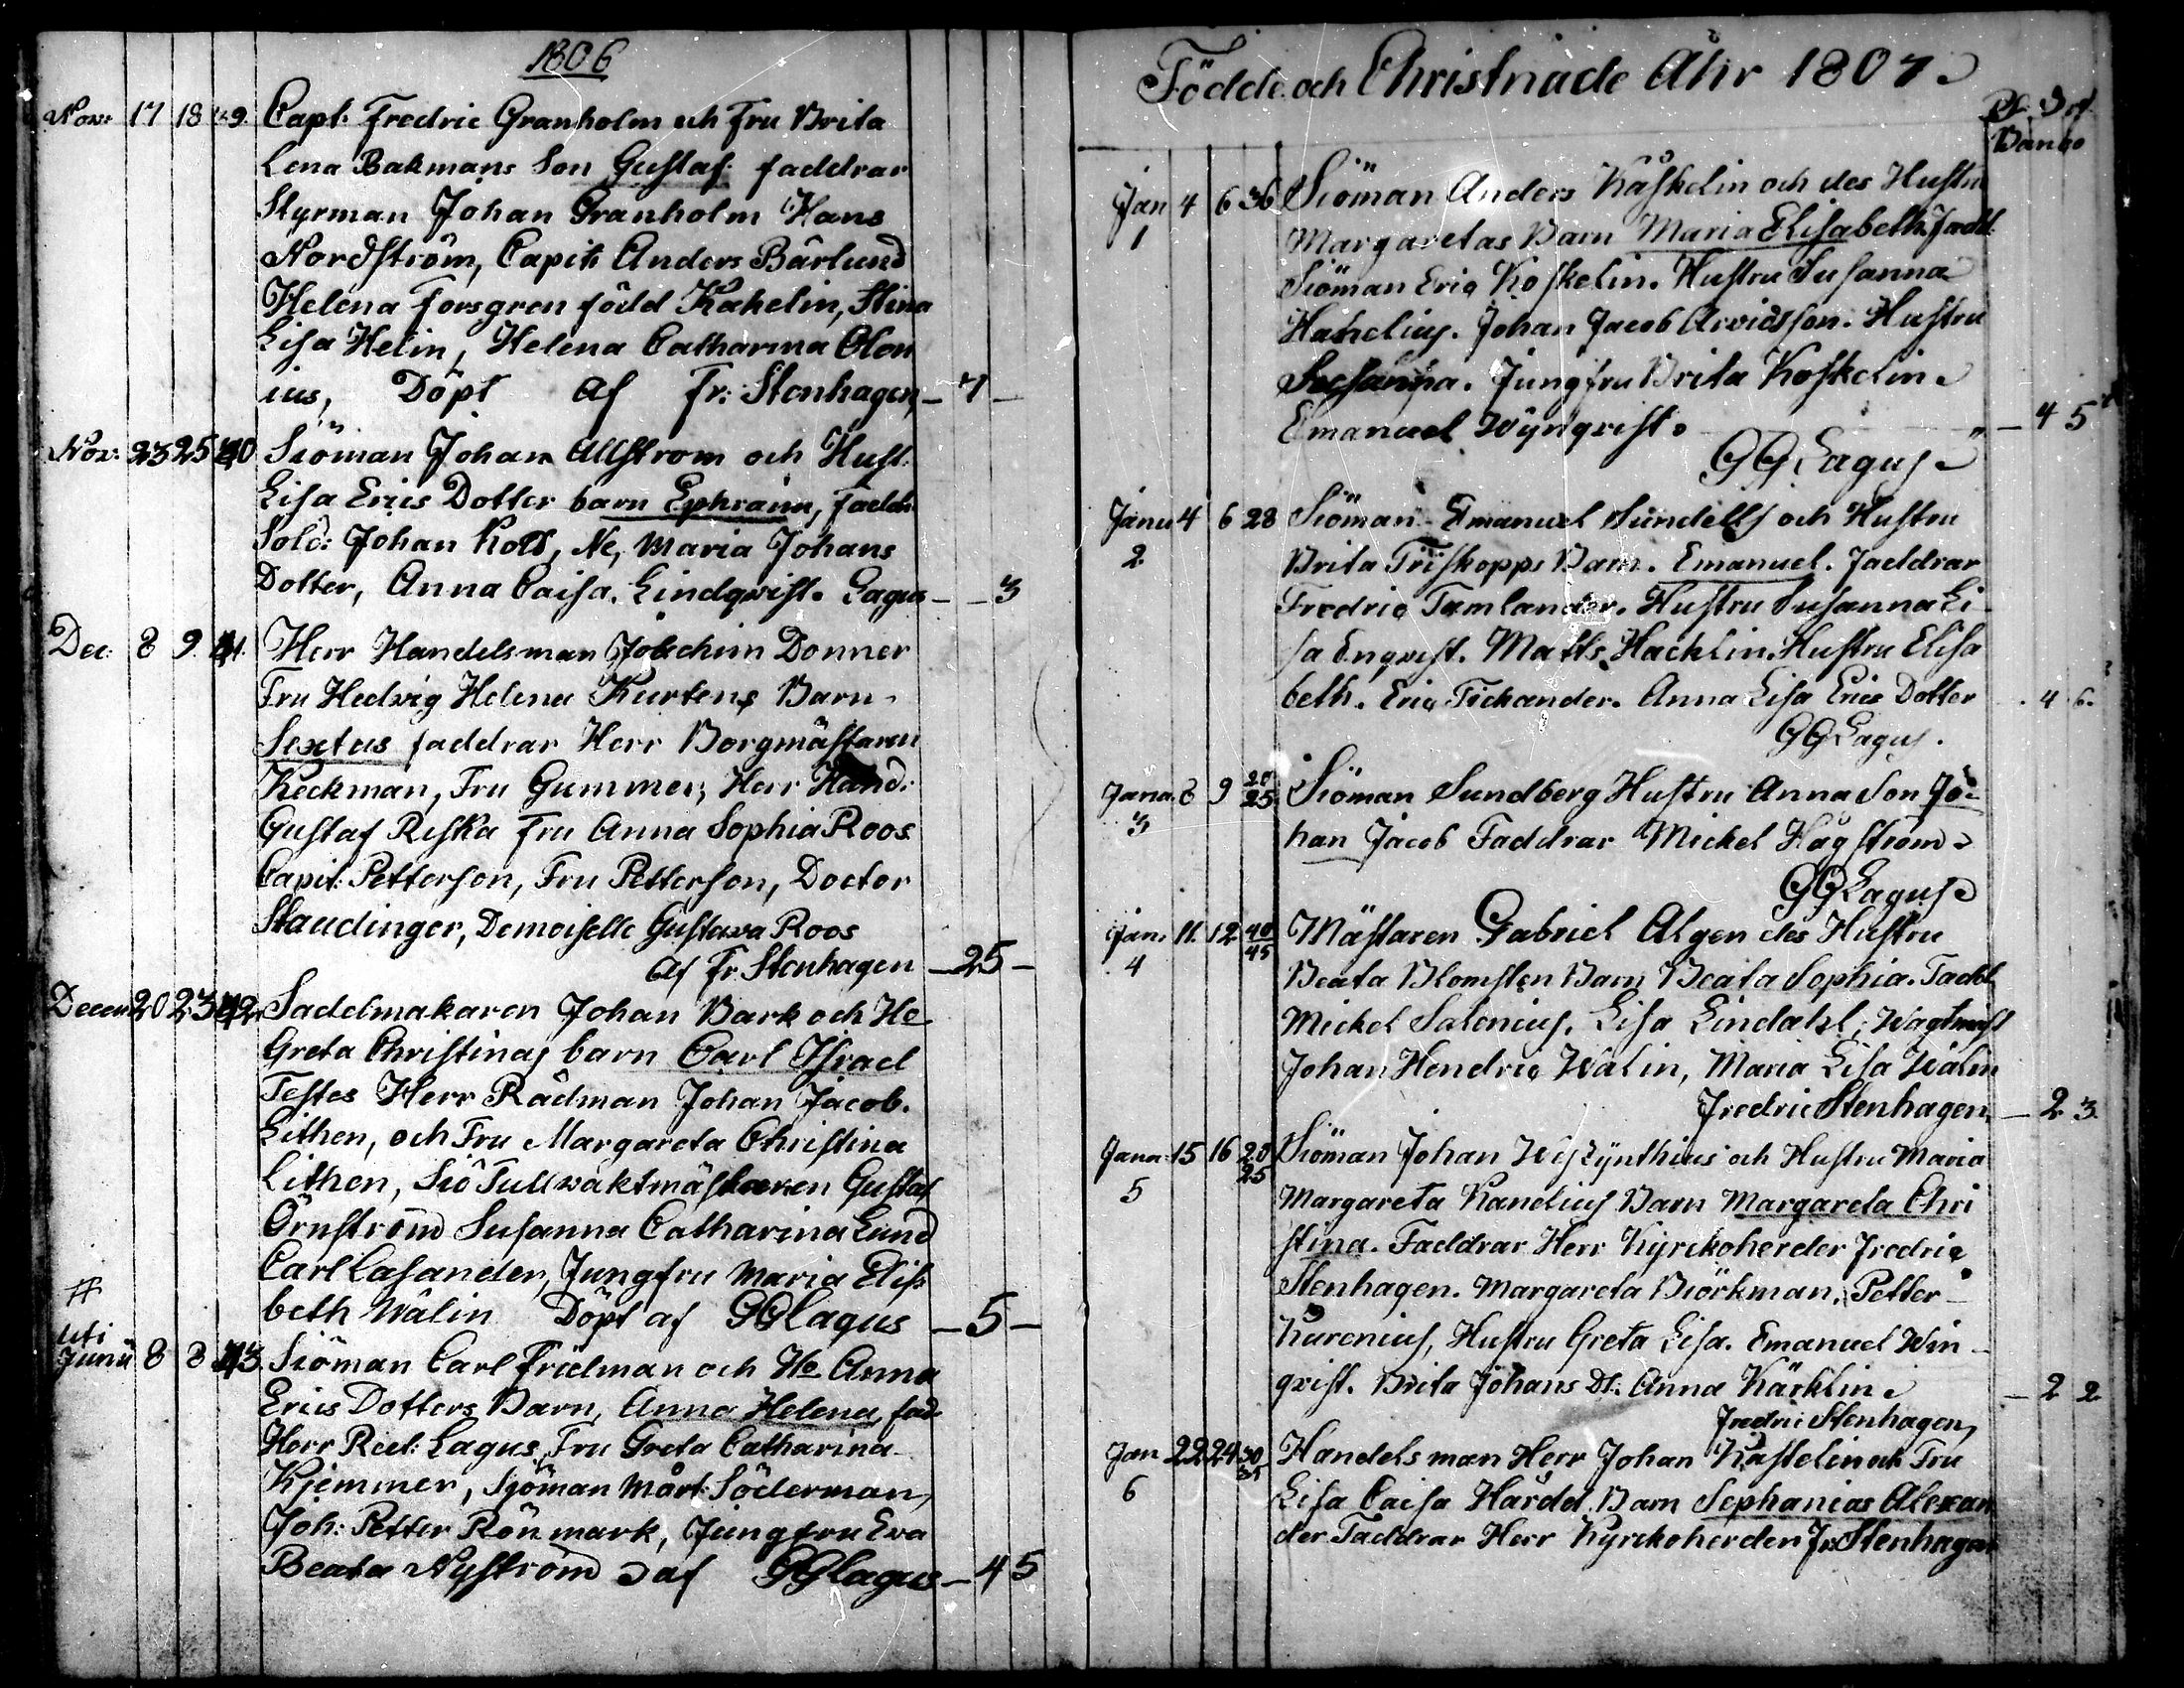 1806
Nov: 17 18 39. Capt: Fredric Granholm och Fru Brita
Lena Bakmans Son Gustaf. faddrar
Styrman Johan Granholm Hans
Nordström, Capit: Anders Bärlund
Helena Forsgren född Kakelin, Stina
Lisa Helin, Helena Catharina Olon
ius, Döpt af Fr: Stenhagen, – 7 –
Nov: 23 25 40 Siöman Johan Allstrom och Hust:
Lisa Erics Dotter barn Ephraim, faddr:
Sold: Johan Kold, Ne, Maria Johans
Dotter, Anna Caisa Lindqvist. Lagus – – 3
Dec: 8 9. 41. Herr Handelsman Joachim Donner
Fru Hedvig Helena Kurtens Barn
Sextus faddrar Herr Borgmästaren
Keckman, Fru Gummer, Herr Hand:
Gustaf Riska Fru Anna Sophia Roos
Capit: Petterson, Fru Petterson, Doctor
Staudinger, Demoiselle Gustava Roos
af Fr. Stenhagen – 25 –
Decem 20 23 42 Sadelmakaren Johan Bark och He
Greta Christinas barn Carl Israel
Testes Herr Rådman Johan Jacob.
Lithen, och Fru Margareta Christina
Lithen, Siö Tullwaktmästaren Gustaf
Örnström Susanna Catharina Lund
Carl Casander, Jungfru Maria Elisa
beth Wälin Döpt af GGLagus – 5 –
uti
Junii 8 8 43. Siöman Carl Fridman och He Anna
Erics Dotters Barn, Anna Helena, fad
Herr Rect: Lagus, Fru Greta Catharina
Kjemmer, Sjöman Mårt: Söderman,
Joh: Petter Rönmark, Jungfru Eva
Beata Nyström D af GGLagus – 4 5
Födde och Christnade Åhr 1807.
Banco
Jan 4 6 36 Siöman Anders Kåskelin och des Hustru
1 Margaretas Barn Maria Elisabeth. Fadd:
Siöman Eric Koskelin. Hustru Susanna
Hanelius. Johan Jacob Arvidsson. Hustru
Susanna. Jungfru Brita Koskelin.
Emanuel Wynqvist. – 4 5
GGLagus
Janu 4 6 28 Siöman Emanuel Sundells och Hustru
2. Brita Triskopps Barn. Emanuel. faddrar
Fredric Tamlander. Hustru Susanna Li
sa Enqvist. Matts Hacklin. Hustru Elisa
beth. Eric Tickander. Anna Lisa Erics Dotter . 4 6.
GGLagus.
Janu. 8 9 20/25 Siöman Sundberg Hustru Anna Son Jo-
3 han Jacob Faddrar Mickel Hägström.
GGLagus
Jan. 11. 12 40/45 Mästaren Gabriel Algen des Hustru
4 Beata Blomsten Barn Beata Sophia. Fadd.
Mickel Salenius. Lisa Lindahl, Wagtmäst
Johan Hendric Wälin, Maria Lisa Wälin
Fredric Stenhagen – 2 3.
Janu 15 16 20/25 Siöman Johan Wiskynthius och Hustru Maria
5 Margareta Kanelius Barn Margareta Chri
stina. Faddrar Herr Kyrckoherder Fredric
Stenhagen. Margareta Biörkman. Petter
Kurenius, Hustru Greta Lisa. Emanuel Win-
qvist. Brita Johans Dt: Anna Kärklin. – 2 2
Fredric Stenhagen,
Jan 22 24 30/35 Handelsman Herr Johan Kastelin och Fru
6 Lisa Caisa Hårdd Barn Sephanias Alexan
der Faddrar Herr Kyrckoherden Fr. Stenhagen